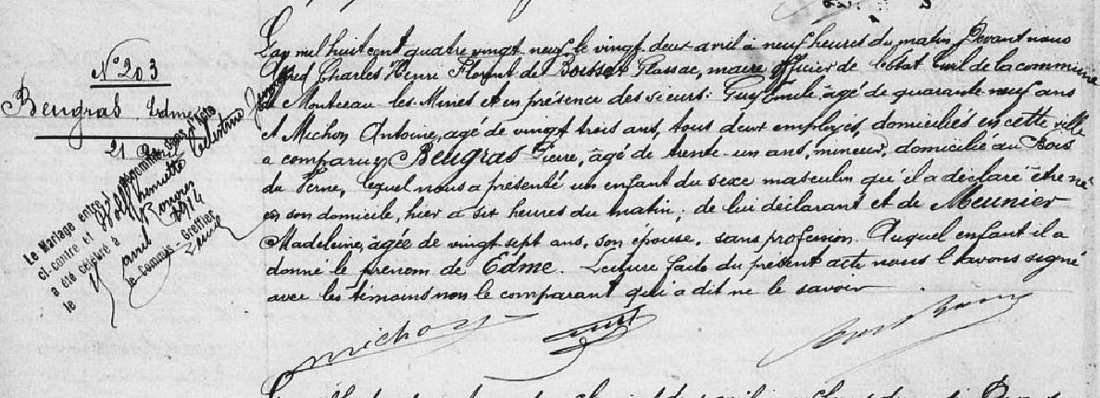 N° 203
Beugras Edme
21 avril
Le Mariage entre
ci-contre et
a été célébré à
le avril 1914
Le Commis-Greffier
L'an mil huit cent quatre vingt neuf le vingt deux avril à neuf heures du matin Devant nous
Alfred Charles Henri Florent de Boisset Glassac, maire officier de l'état civil de la commune
de Montceau les-Mines et en présence des sieurs: Guy Emile âgé de quarante neuf ans
et Michon Antoine, âgé de vingt trois ans, tous deux employés, domiciliés en cette ville
a comparu Beugras Pierre, âgé de trente-un ans, mineur, domicilié au Bois
du Verne, lequel nous a présenté un enfant du sexe masculin qu'il a déclaré être né
en son domicile, hier à six heures du matin; de lui déclarant et de Meunier
Madeleine, âgée de vingt sept ans, son épouse, sans profession. Auquel enfant il a
donné le prénom de Edme. Lecture faite du présent acte nous l'avons signé
avec les témoins non le comparant qui a dit ne le savoir
Michon